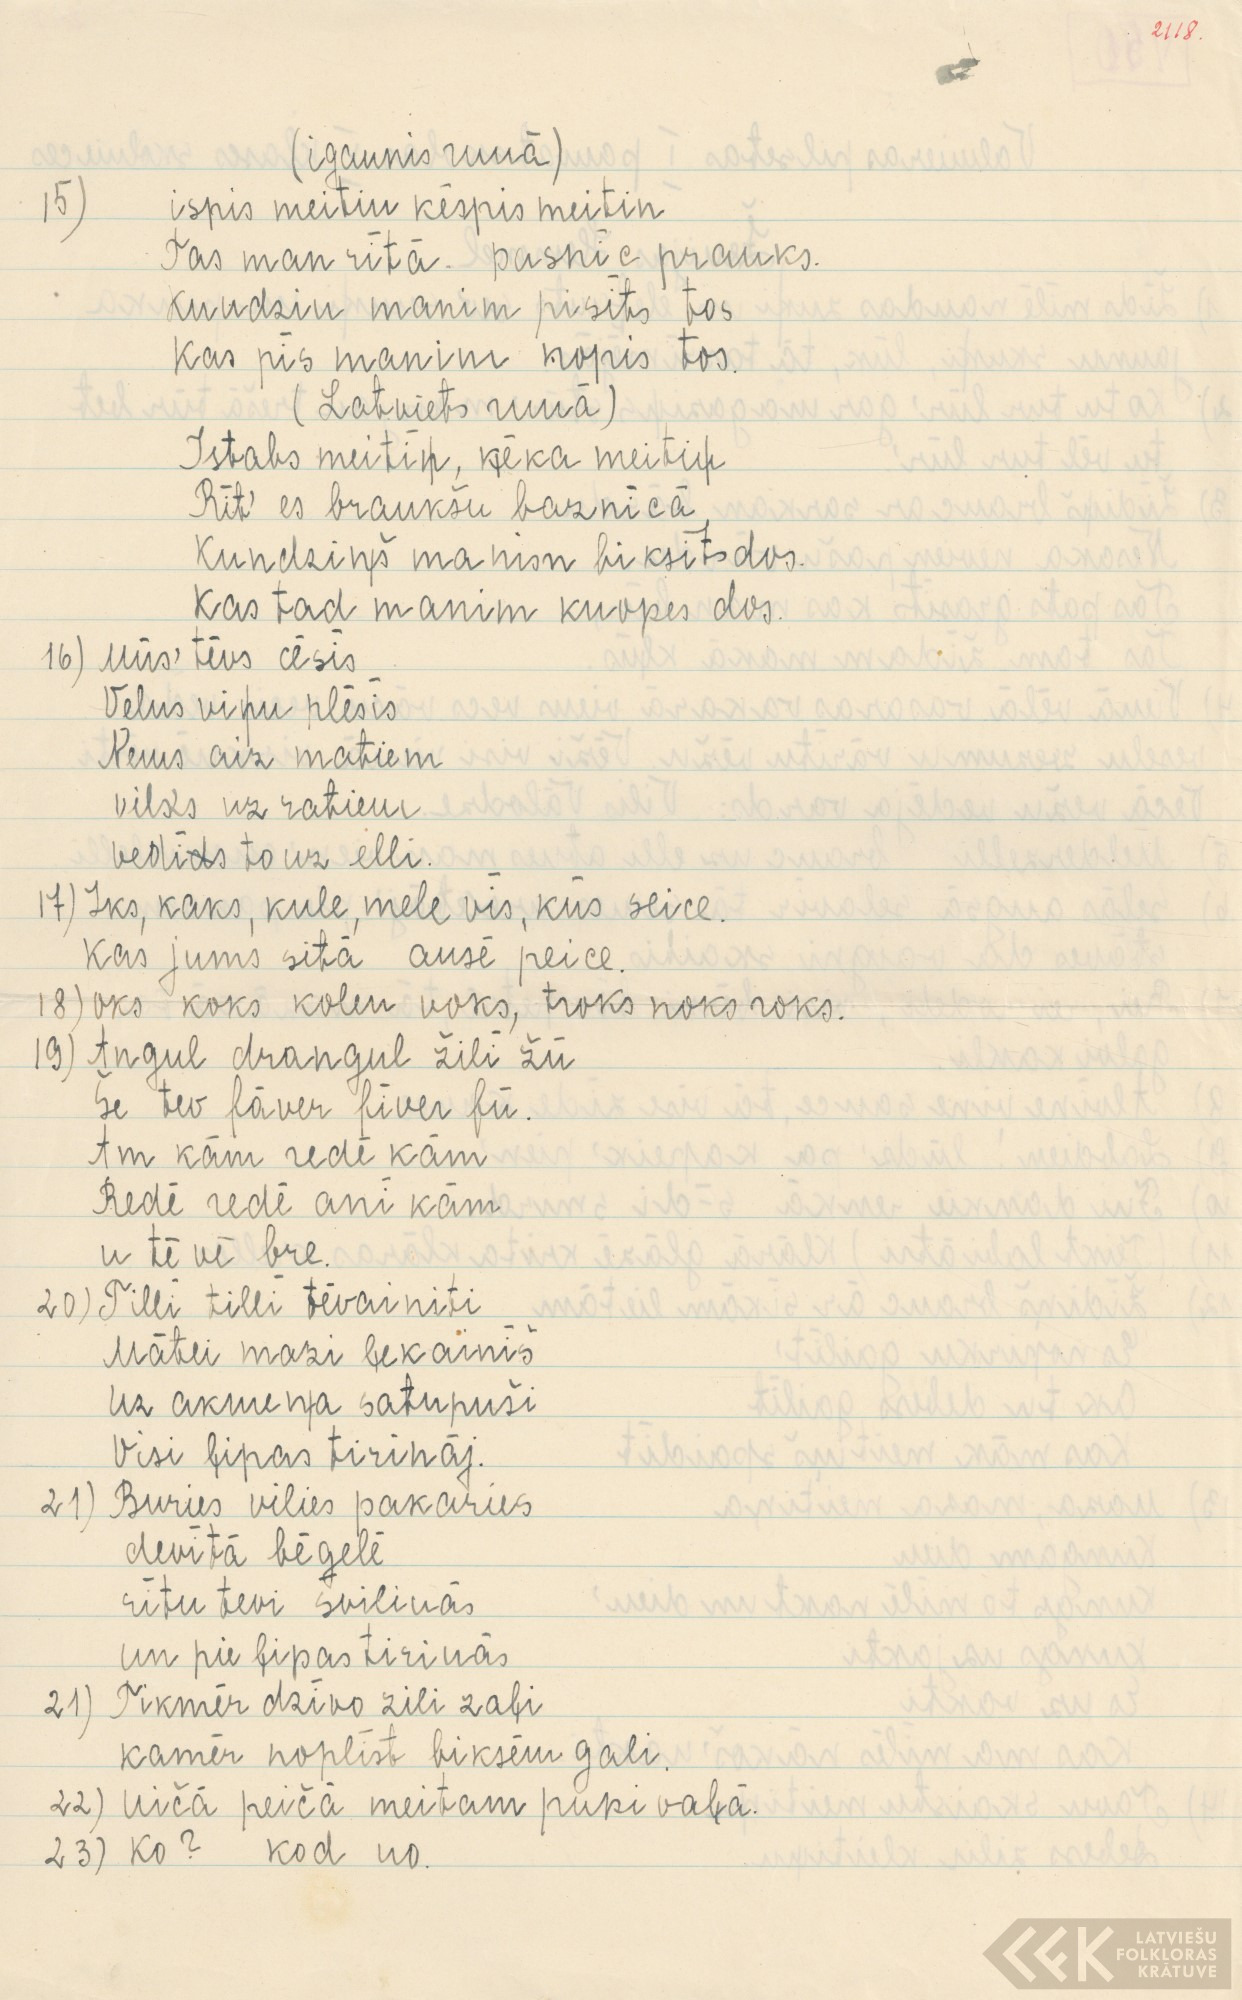 2118.
(igaunis runā)
15) ispis meitin kēspis meitin
Tas man rītā. pasnīc prauks.
Kundzin manim pisits tos
Kas pīs manim kopis tos.
(Latviets runā)
Istabs meitiņ, ķēka meitiņ
Rīt' es braukšu baznīcā,
Kundziņš manim biksīts dos.
Kas tad manim kuopes dos.
16) Mūs' tēvs cēsīs
Velns viņu plēsīs
Ņems aiz matiem
vilks uz ratiem
vedīs to uz elli.
17) Iks, kaks, kule, mele vīs, kūs seice.
Kas jums sitā ausē peice.
18) oks koks kolen voks, troks noks roks.
19) Angul drangul žili žū
Še tev fāver fiver fū.
Am kām redē kām
Redē redē ani kām
u tē vē bre.
20) Tilli tilli tēvainiti
Mātei mazi ļekainīš
Uz akmeņa satupuši
Visi ļipas tirināj.
21) Buries vilies pakaries
devītā bēgelē
rītu tevi svilinās
un pie ļipas tirinās
21) Tikmēr dzīvo zili zaļi
kamēr noplīst biksēm gali.
22) Uičā peičā meitam puķi vaļā.
23) Ko? kod no.
LATVIEŠU
FOLKLORAS
KRĀTUVE